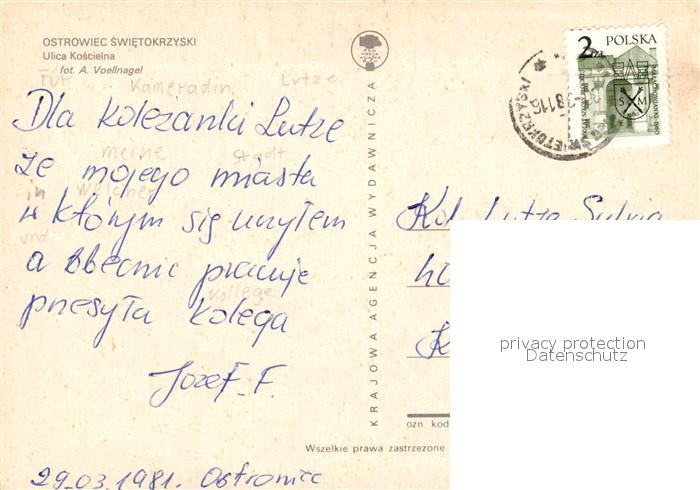 OSTROWIEC ŚWIĘTOKRZYSKI
Ulica Kościelna
fot. A. Voellnagel
2 ZŁ POLSKA
Für Kameradin Lutze
Dla koleżanki Lutze
meine Stadt
ze mojego miasta
in welcher
w którym się uczyłem
und
a obecnie pracuje
Kollege
przesyła kolega
Jozef. F.
29.03.1981. Ostrowiec
KRAJOWA AGENCJA WYDAWNICZA
Kol. Lutze Sylvia
ozn. kod
Wszelkie prawa zastrzeżone
privacy protection
Datenschutz